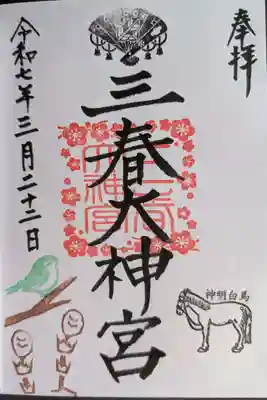 奉拝
三春大神宮
三春大神宮
令和七年三月二十二日
神明白馬